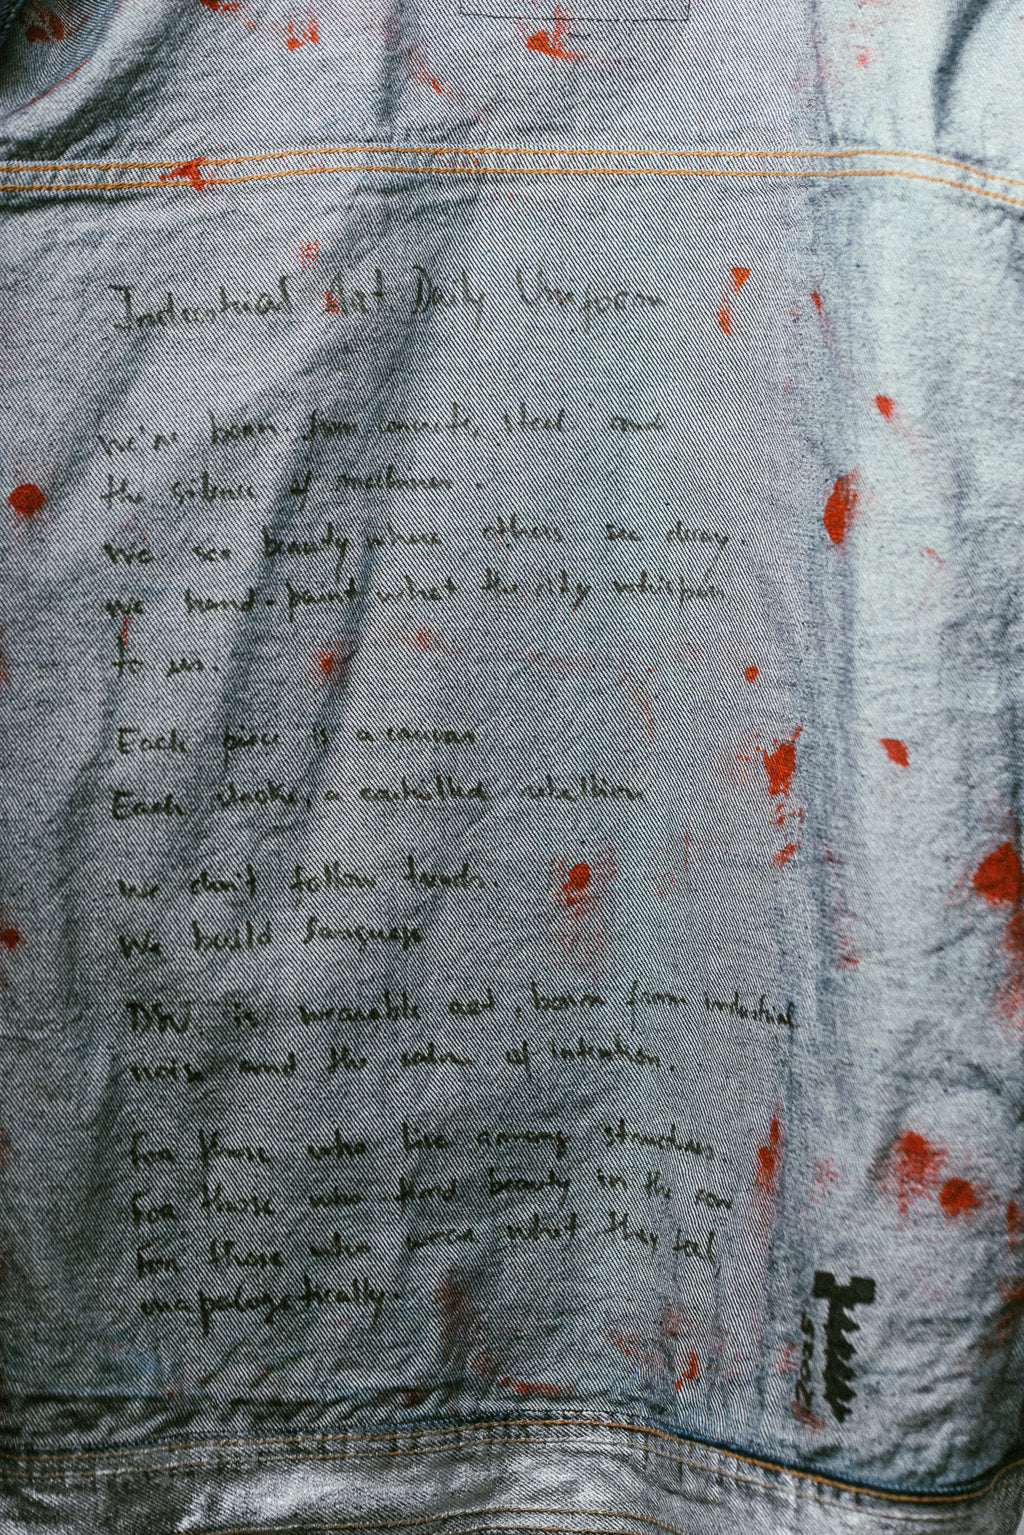 Industrial Art Daily Uniform
We're born from concrete, steel and
the silence of machines.
We see beauty where others see decay.
We hand-paint what the city whispers
to us.
Each piece is a canvas
Each stroke, a controlled rebellion
We don't follow trends.
We build language
is wearable art, born from industrial
noise and the calm of intention.
For those who live among structures.
For those who find beauty in the raw
For those who wear what they feel
unapologetically.
2025